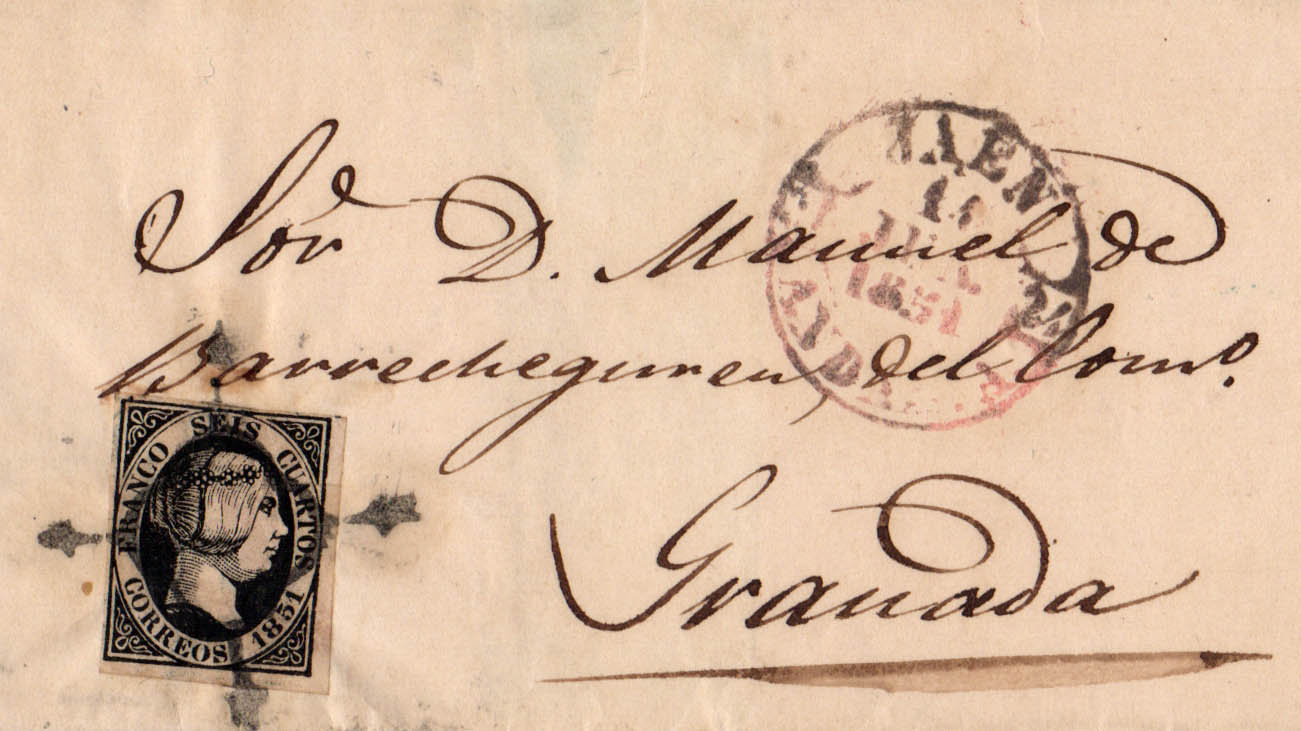 Sor D. Manuel de
Barrecheguren, del Como.
Granada
FRANCO SEIS CUARTOS
CORREOS 1851
JAEN
1851